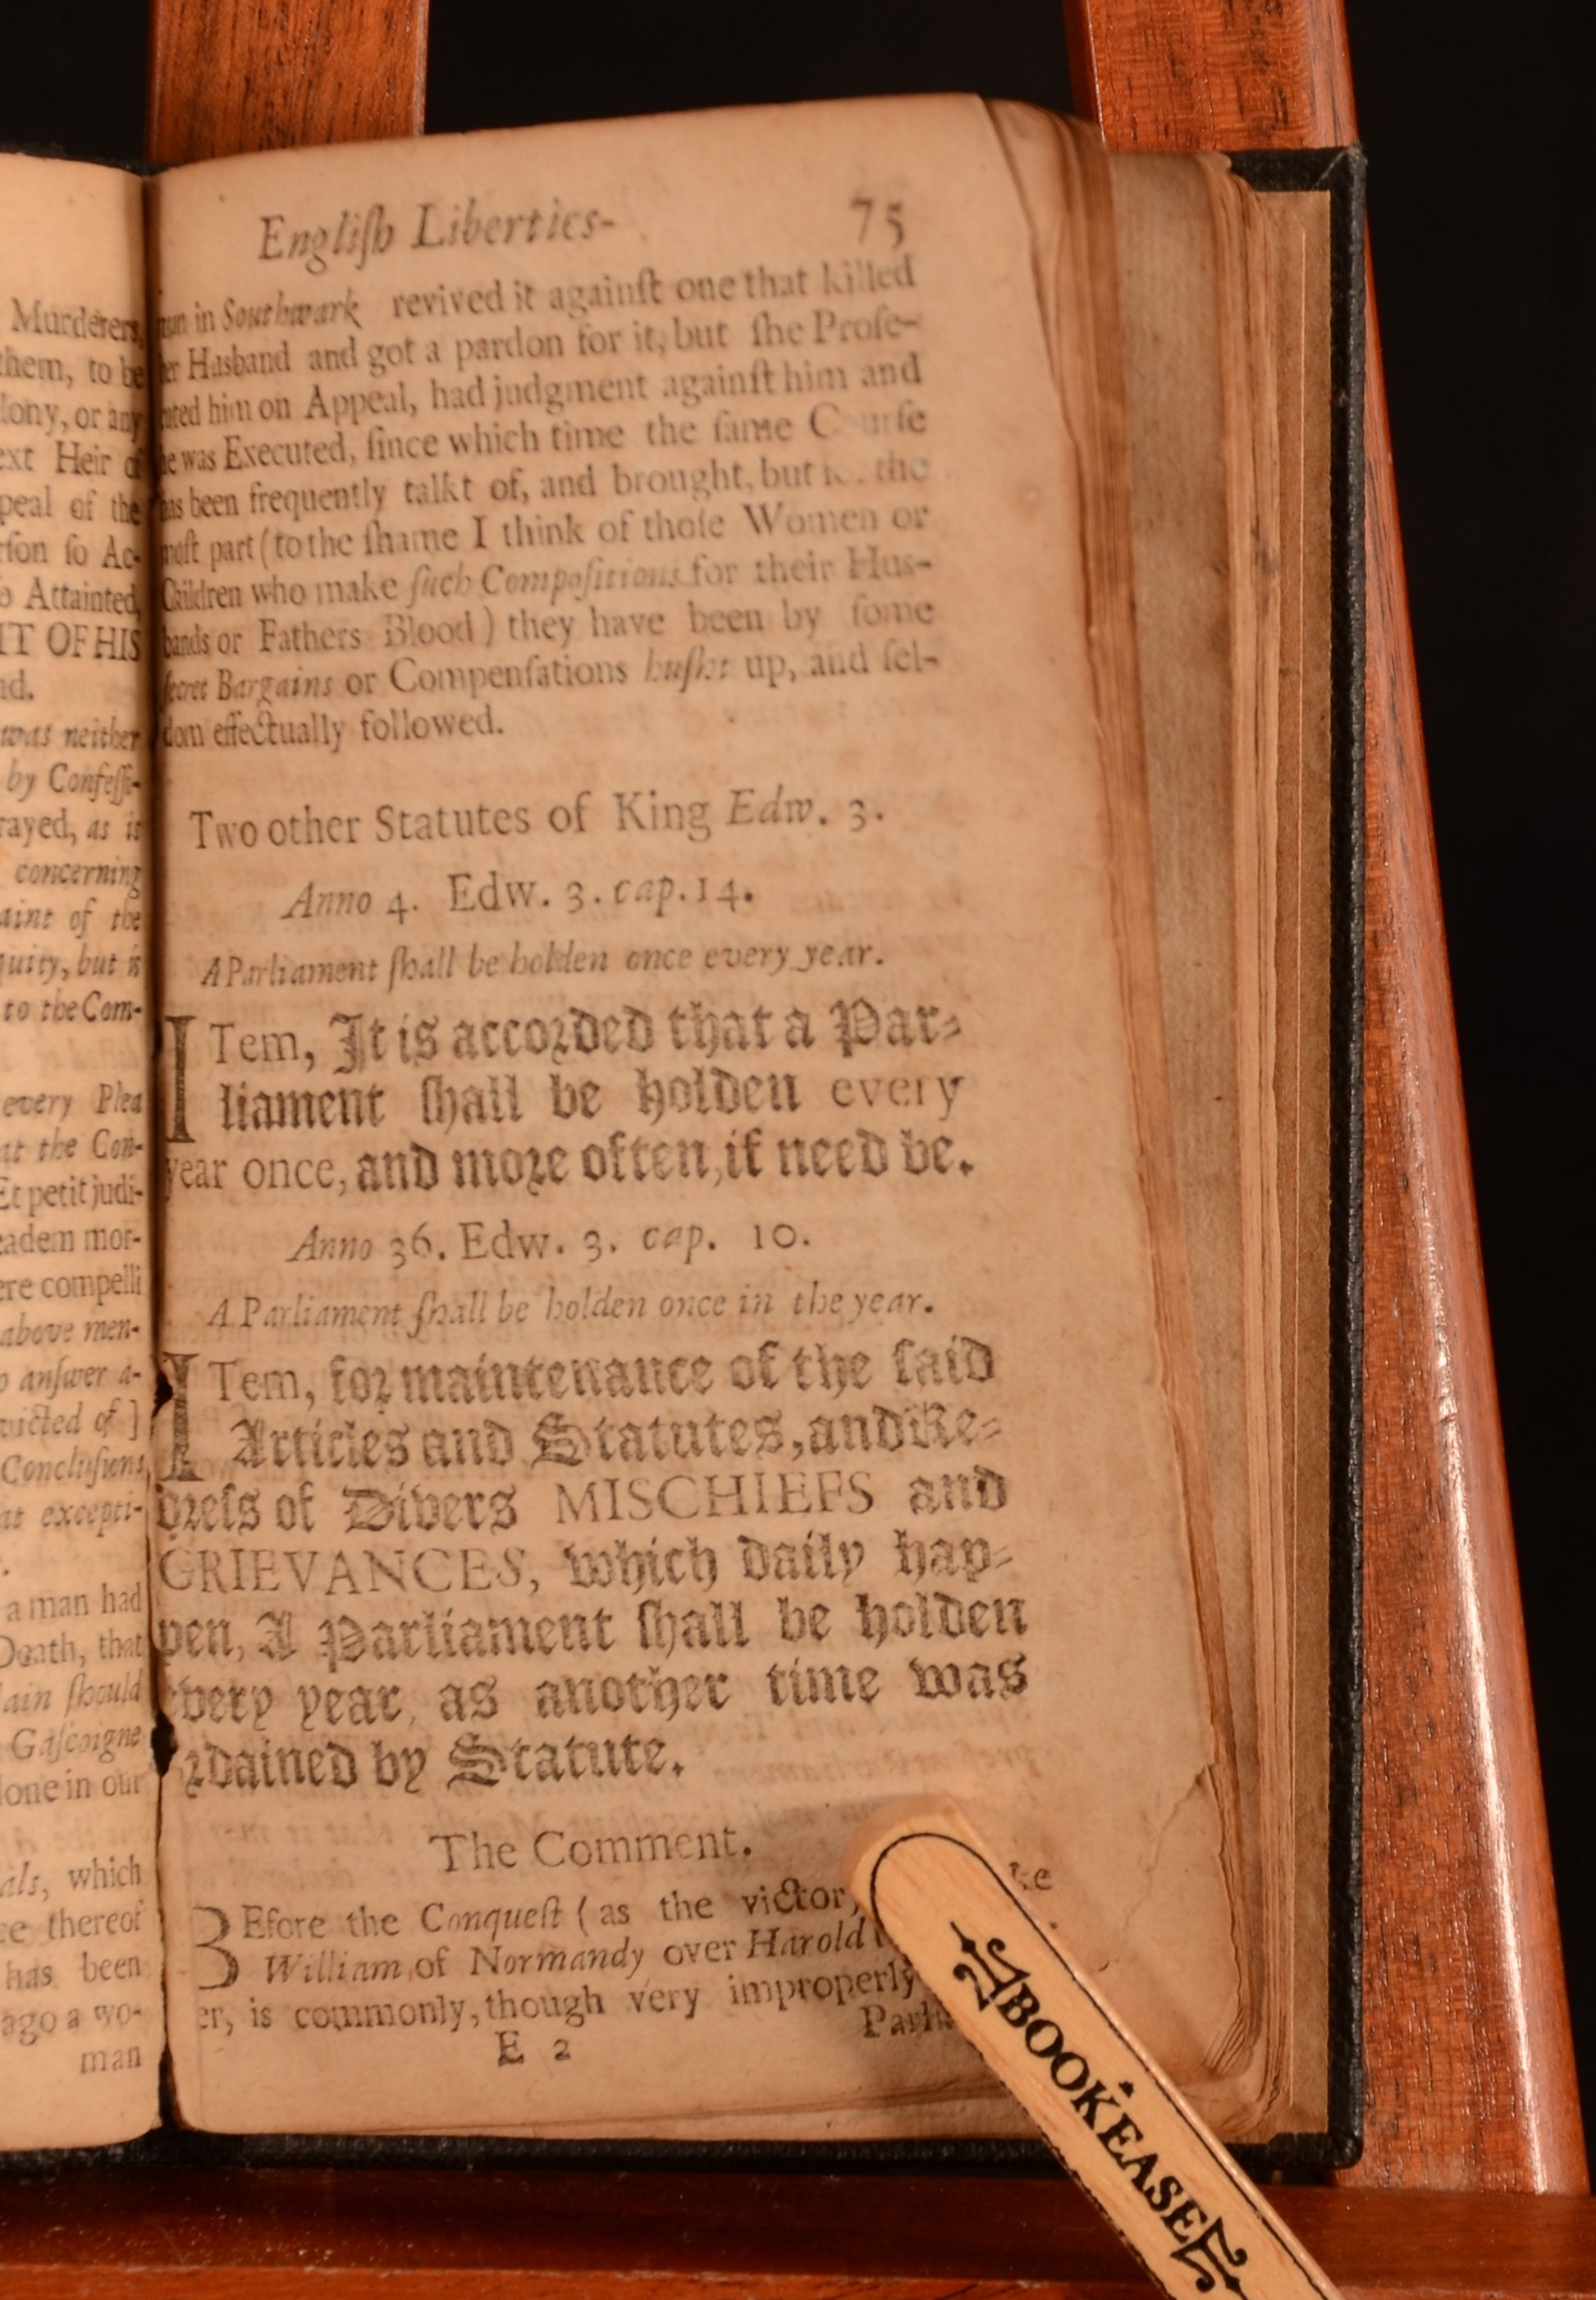 Murderers,
them, to be
lony, or any
ext Heir of
peal of the
rson so Ac-
o Attainted,
IT OF HIS
ad.
was neither
by Confessi-
rayed, as is
concerning
aint of the
quity, but is
to the Com-
every Plea
at the Con-
Et petit judi-
eadem mor-
ere compelli
above men-
o answer a-
victed of ]
Conclusions
at excepti-
a man had
Death, that
lain should
Gascoigne
done in our
als, which
ce thereof
has been
ago a wo-
man
Engliſh Liberties- 75
man in Southwark revived it againſt one that killed
her Hasband and got a pardon for it, but ſhe Proſe-
cuted him on Appeal, had judgment againſt him and
he was Executed, ſince which time the ſame Courſe
has been frequently talkt of, and brought, but the
moſt part (to the ſhame I think of thoſe Women or
Children who make ſuch Compoſitions for their Hus-
bands or Fathers Blood) they have been by ſome
ſecret Bargains or Compenſations huſht up, and ſel-
dom effectually followed.
Two other Statutes of King Edw. 3.
Anno 4. Edw. 3. cap. 14.
A Parliament ſhall be holden once every year.
ITem, It is accorded that a Par-
liament ſhall be holden every
year once, and more often, if need be.
Anno 36. Edw. 3. cap. 10.
A Parliament ſhall be holden once in the year.
ITem, for maintenance of the ſaid
Articles and Statutes, and Re-
dreſs of Divers MISCHIEFS and
GRIEVANCES, which daily hap-
pen, A Parliament ſhall be holden
every year, as another time was
rdained by Statute.
The Comment.
BEfore the Conqueſt (as the victor, ke
William of Normandy over Harold
er, is commonly, though very improperly
E 2 Parli
ABOOKEASEL